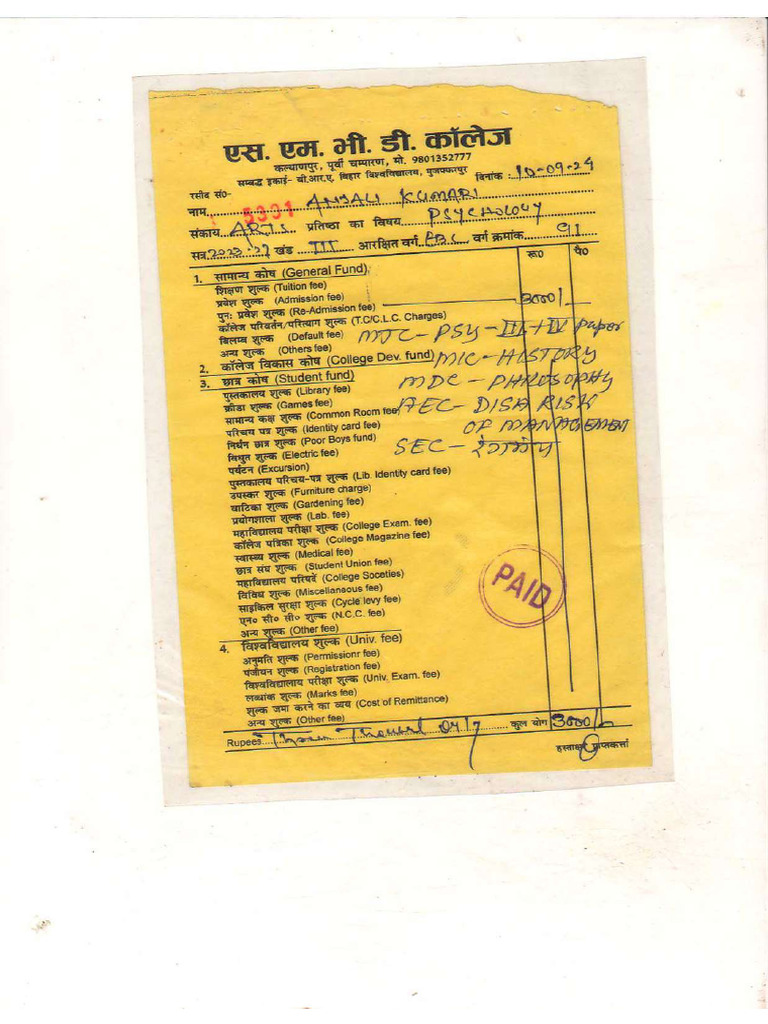 एस. एम. भी. डी. कॉलेज
कल्याणपुर, पूर्वी चम्पारण, मो. 9801352777
सम्बद्ध इकाई- बी.आर.ए. बिहार विश्वविद्यालय, मुजफ्फरपुर दिनांक : 10-09-24
रसीद सं०- 5331
नाम ANJALI KUMARI
संकाय ARTS प्रतिष्ठा का विषय PSYCHOLOGY
सत्र 2023-27 खंड III आरक्षित वर्ग EBC वर्ग क्रमांक 91
रू० पै०
1. सामान्य कोष (General Fund)
शिक्षण शुल्क (Tuition fee)
प्रवेश शुल्क (Admission fee) 3000/-
पुनः प्रवेश शुल्क (Re-Admission fee)
कॉलेज परिवर्तन/परित्याग शुल्क (T.C/C.L.C. Charges)
बिलम्ब शुल्क (Default fee) MJC-PSY-III+IV Paper
अन्य शुल्क (Others fee)
2. कॉलेज विकास कोष (College Dev. fund) MIC-HISTORY
3. छात्र कोष (Student fund) MDC-PHILOSOPHY
पुस्तकालय शुल्क (Library fee)
क्रीडा शुल्क (Games fee) AEC-DISA RISK
सामान्य कक्ष शुल्क (Common Room fee) OF MANAGEMENT
परिचय पत्र शुल्क (Identity card fee)
निर्धन छात्र शुल्क (Poor Boys fund) SEC-
विधुत शुल्क (Electric fee)
पर्यटन (Excursion)
पुस्तकालय परिचय-पत्र शुल्क (Lib. Identity card fee)
उपस्कर शुल्क (Furniture charge)
वाटिका शुल्क (Gardening fee)
प्रयोगशाला शुल्क (Lab. fee)
महाविद्यालय परीक्षा शुल्क (College Exam. fee)
कॉलेज पत्रिका शुल्क (College Magazine fee)
स्वास्थ्य शुल्क (Medical fee)
छात्र संघ शुल्क (Student Union fee)
महाविद्यालय परिषदें (College Soceties)
विविध शुल्क (Miscellansous fee)
साइकिल सुरक्षा शुल्क (Cycle levy fee)
एन० सी० सी० शुल्क (N.C.C. fee)
अन्य शुल्क (Other fee)
PAID
4. विश्वविद्यालय शुल्क (Univ. fee)
अनुमति शुल्क (Permissionr fee)
पंजीयन शुल्क (Registration fee)
विश्वविद्यालाय परीक्षा शुल्क (Univ. Exam. fee)
लब्धांक शुल्क (Marks fee)
शुल्क जमा करने का व्यय (Cost of Remittance)
अन्य शुल्क (Other fee)
कुल योग 3000/-
Rupees Three Thousand only
हस्ताक्षर प्राप्तकर्त्ता